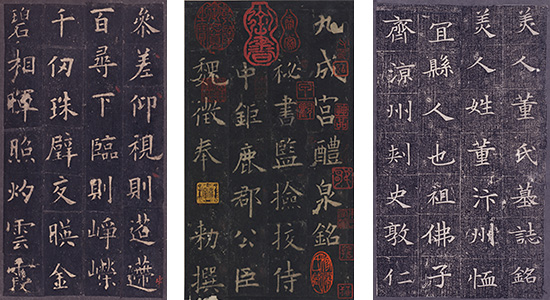 叅差仰視則迢遰
百尋下臨則崢嶸
千仞珠璧交暎金
碧相暉照灼雲霞
九成宮醴泉銘
秘書監撿挍侍
中鉅鹿郡公臣
魏徵奉 勑撰
美人董氏墓誌銘
美人姓董汴州恤
冝縣人也祖佛子
齊涼州刾史敦仁